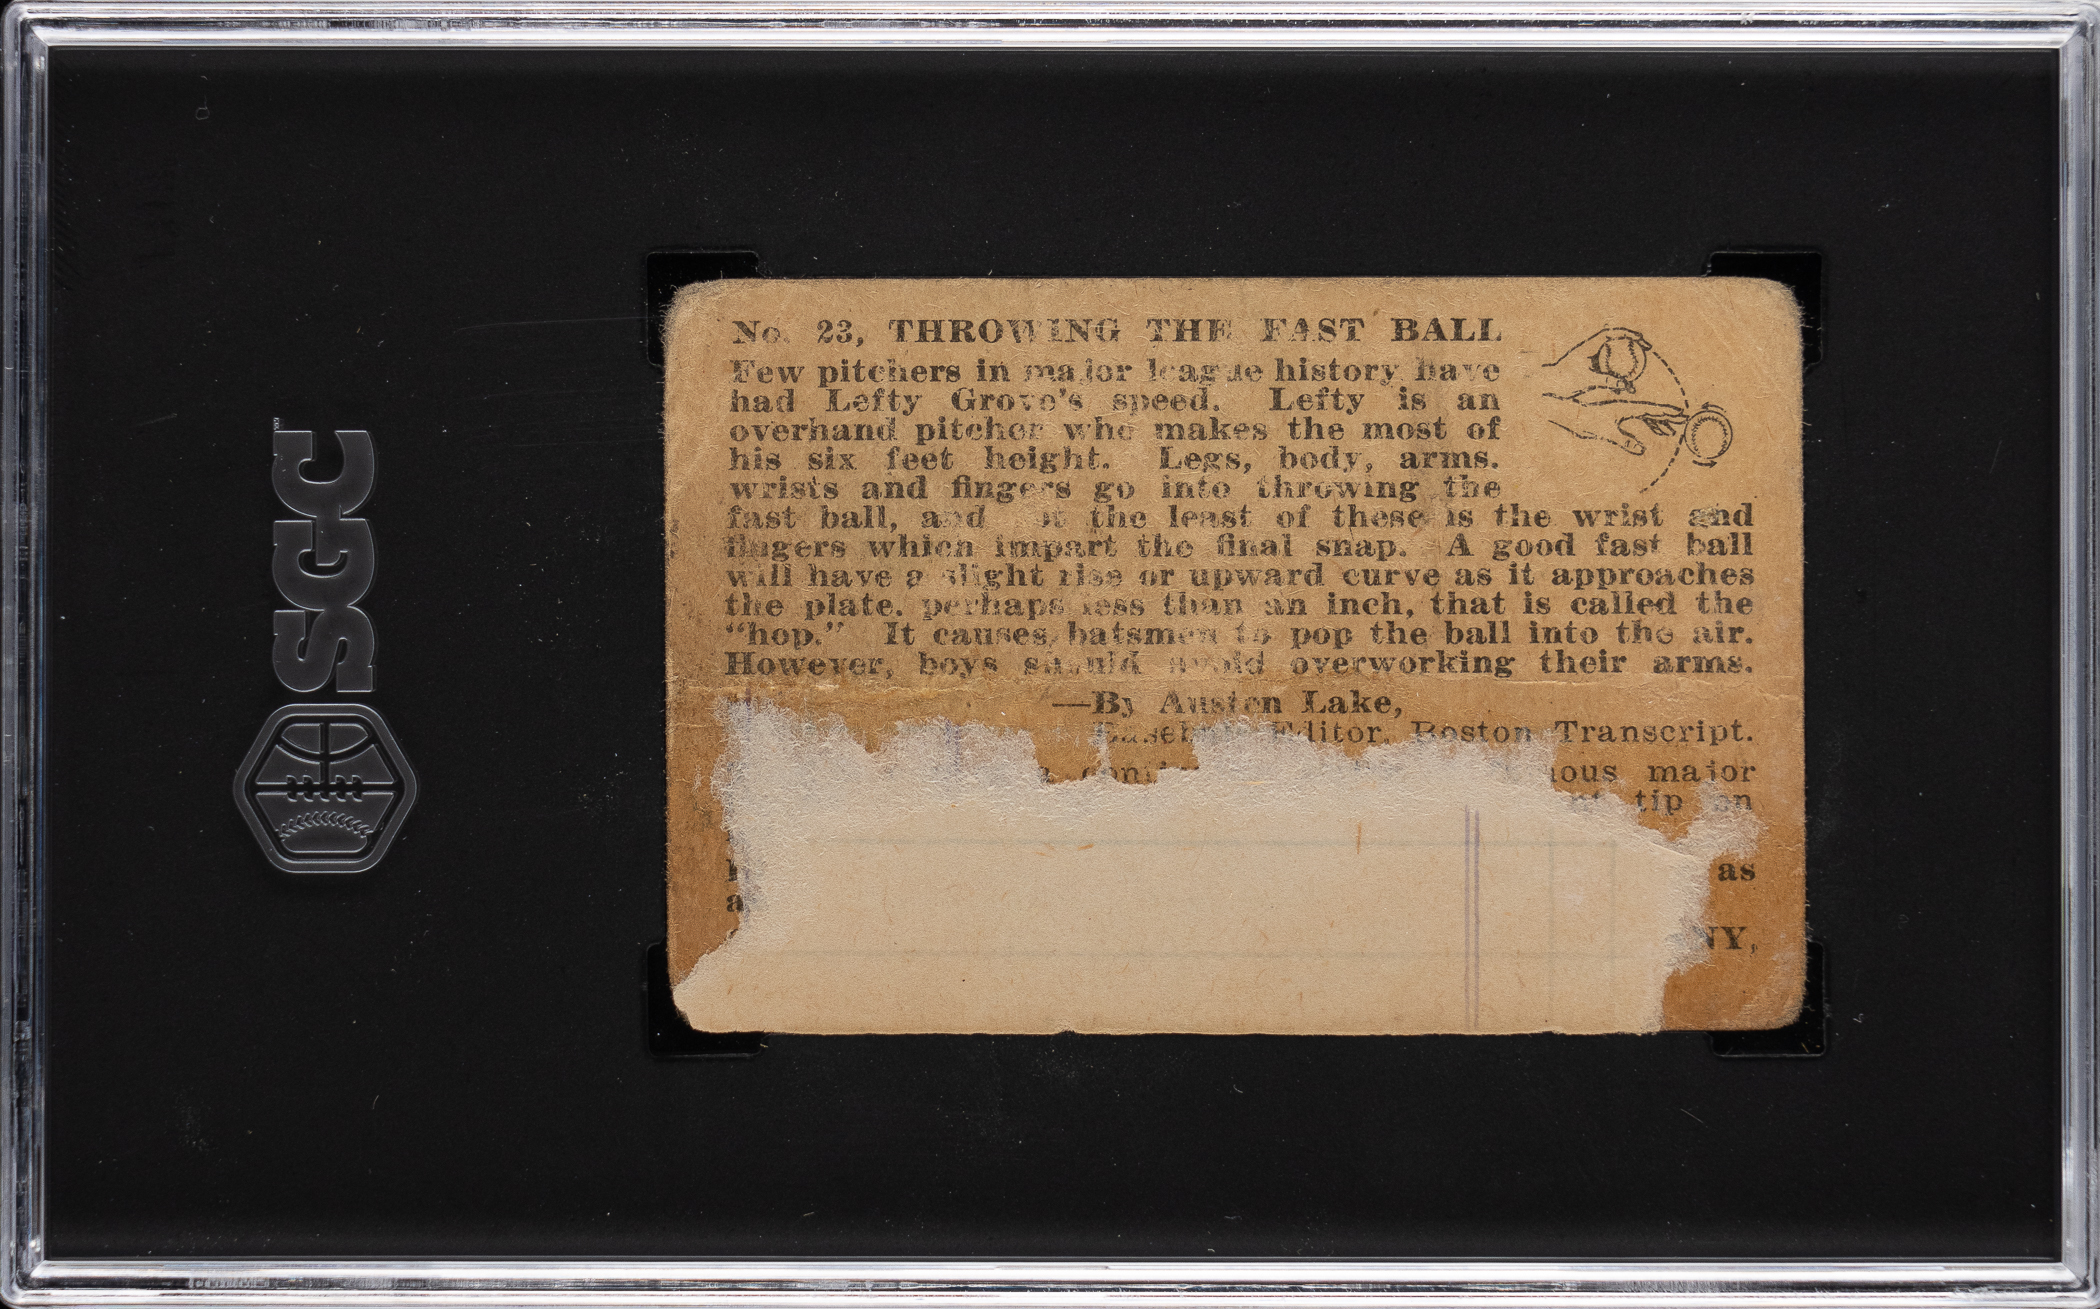 SGC
No. 23, THROWING THE FAST BALL
Few pitchers in major league history have
had Lefty Grove's speed. Lefty is an
overhand pitcher who makes the most of
his six feet height. Legs, body, arms.
wrists and fingers go into throwing the
fast ball, and the least of these is the wrist and
fingers which impart the final snap. A good fast ball
will have a slight rise or upward curve as it approaches
the plate. perhaps less than an inch, that is called the
"hop." It causes batsmen to pop the ball into the air.
However, boys should avoid overworking their arms.
—By Austen Lake,
Baseball Editor, Boston Transcript.
major
tip on
as
NY,